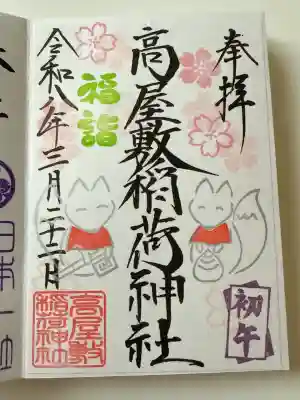 奉拝
初午
高屋敷稲荷神社
福詣
令和八年三月二十二日
高屋敷
稲荷神社
日本一社